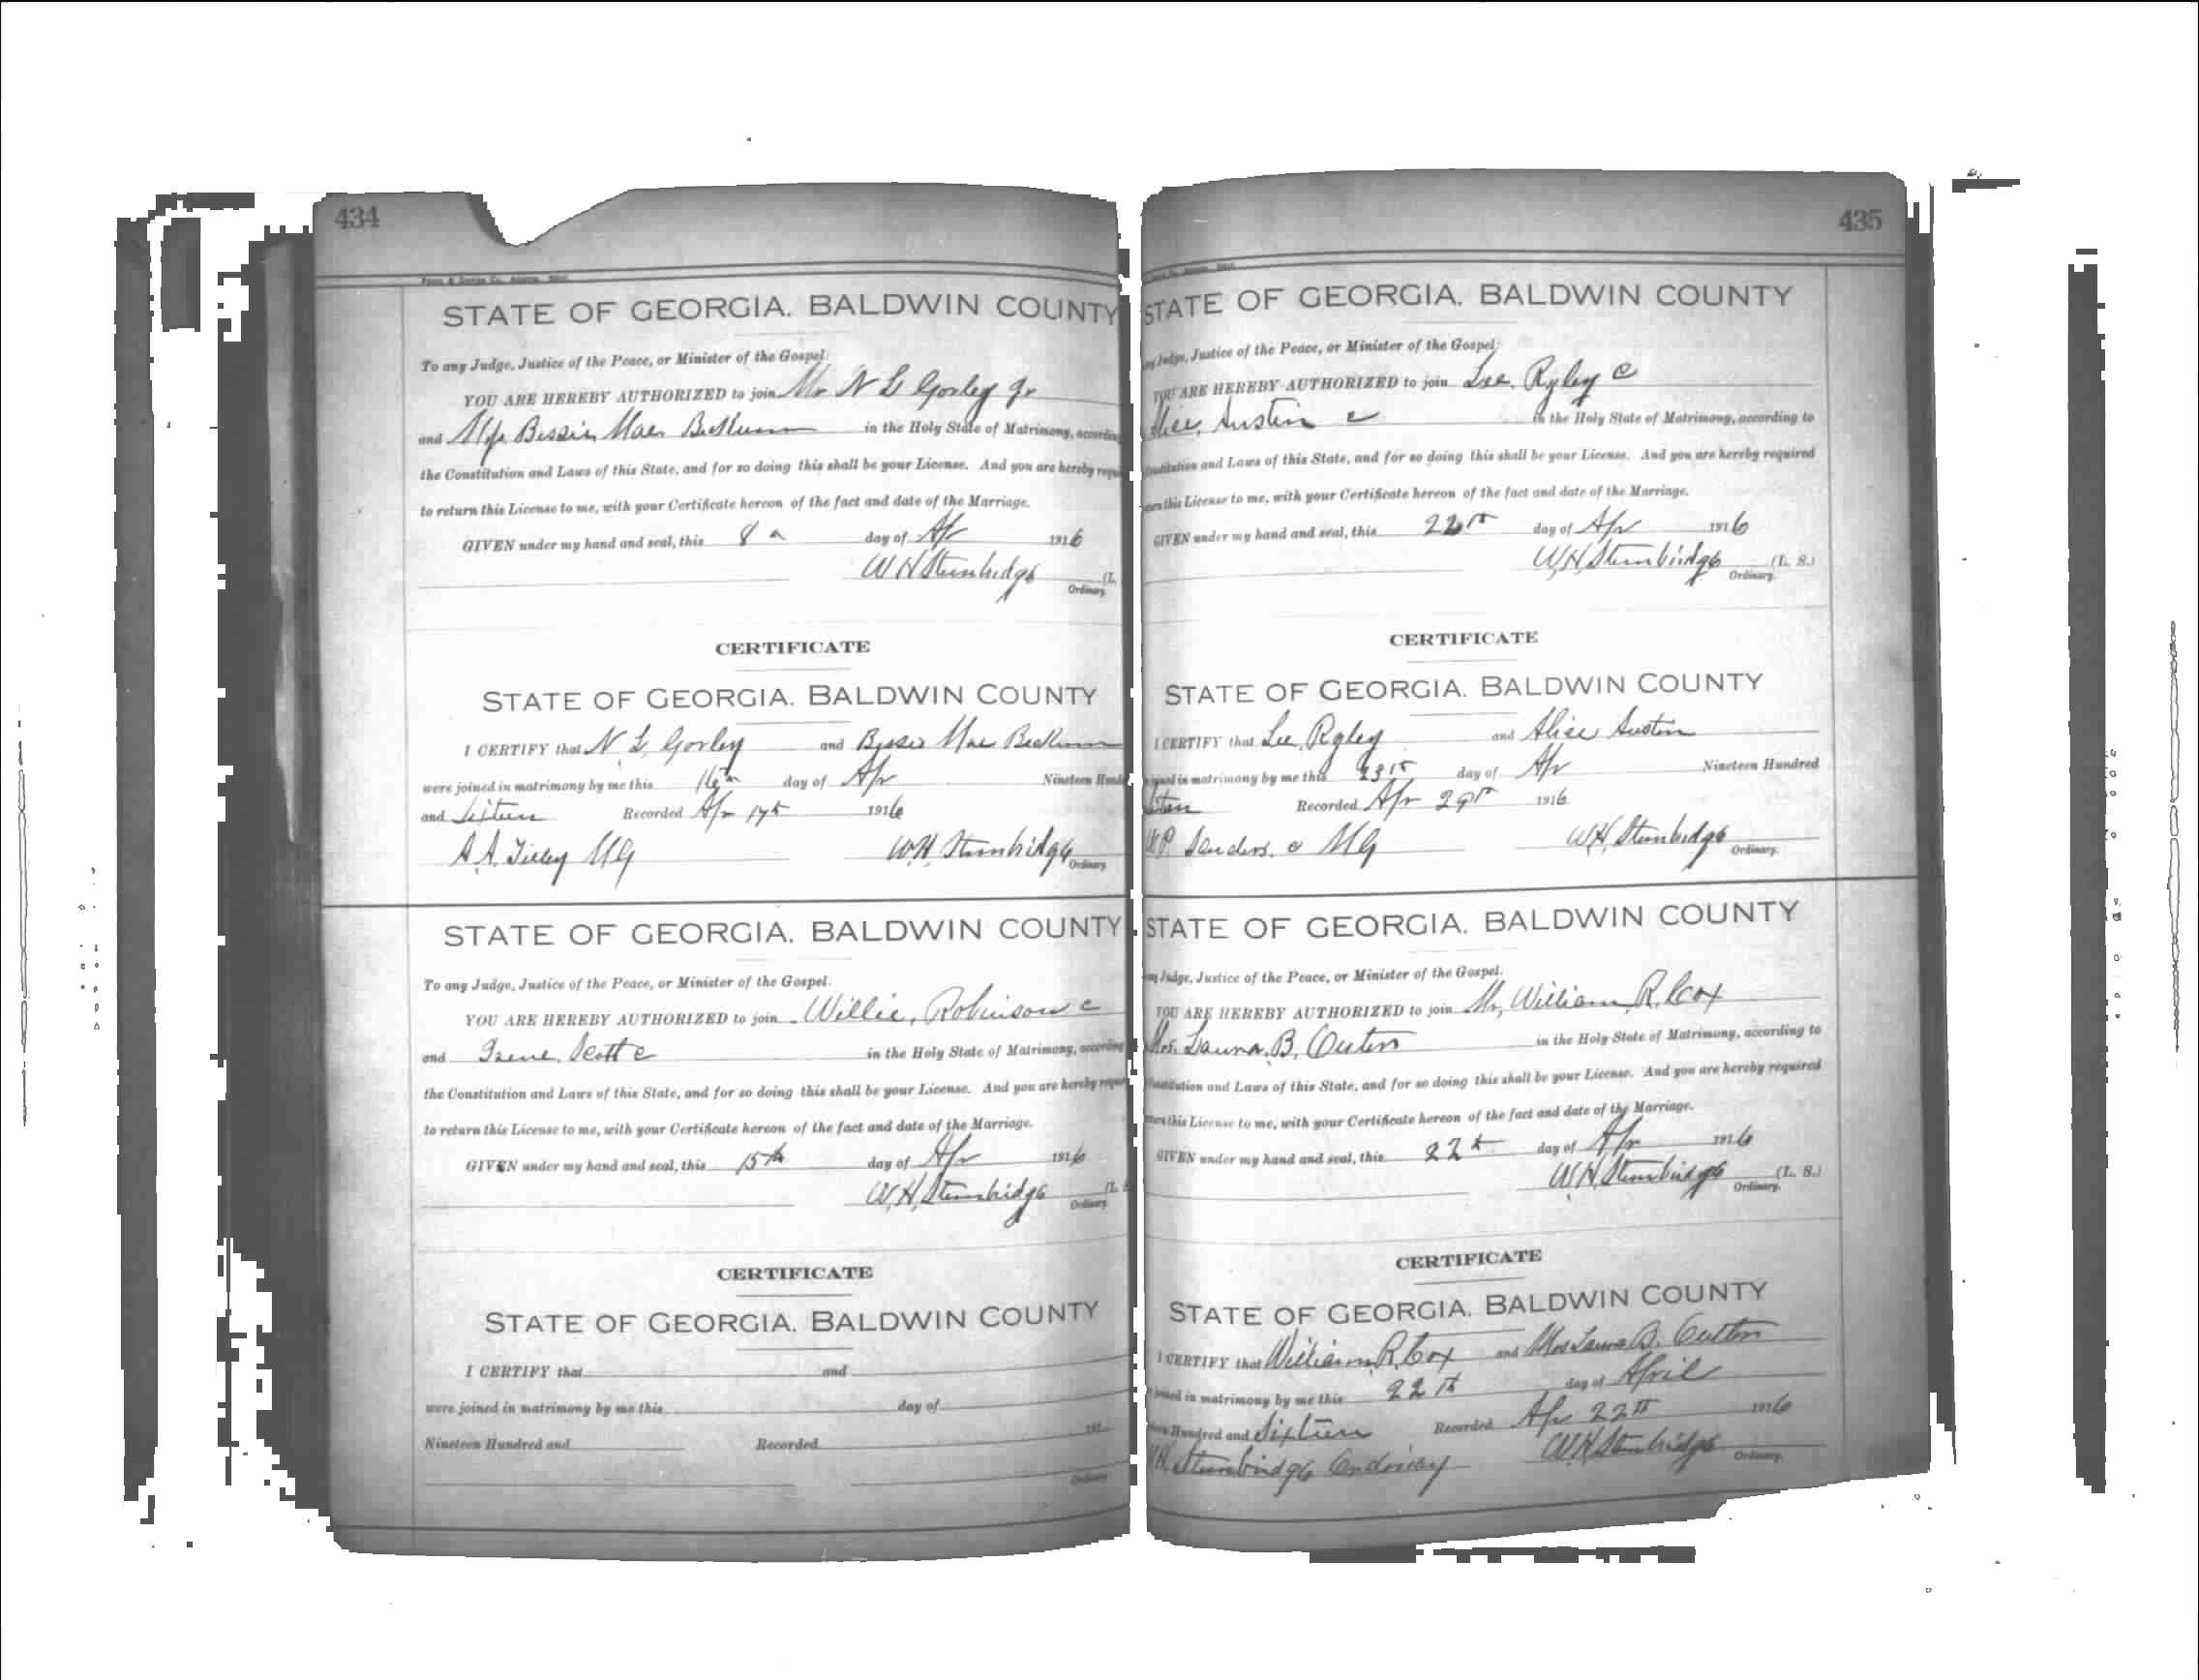 434
STATE OF GEORGIA. BALDWIN COUNTY
To any Judge, Justice of the Peace, or Minister of the Gospel:
YOU ARE HEREBY AUTHORIZED to join Mr N L Gorley Jr
and Miss Bessie Mae in the Holy State of Matrimony, according
the Constitution and Laws of this State, and for so doing this shall be your License. And you are hereby
to return this License to me, with your Certificate hereon of the fact and date of the Marriage.
GIVEN under my hand and seal, this 8 day of Apr 1916
W H Stembridge (L.
Ordinary.
CERTIFICATE
STATE OF GEORGIA. BALDWIN COUNTY
I CERTIFY that N L Gorley and Bessie Mae
were joined in matrimony by me this 16th day of Apr Nineteen
and Sixteen Recorded Apr 17th 1916
A A Tilley MG W.H. Stembridge
Ordinary.
STATE OF GEORGIA. BALDWIN COUNTY
To any Judge, Justice of the Peace, or Minister of the Gospel.
YOU ARE HEREBY AUTHORIZED to join Willie Robinson c
and Irene Scott c in the Holy State of Matrimony, according
the Constitution and Laws of this State, and for so doing this shall be your License. And you are hereby
to return this License to me, with your Certificate hereon of the fact and date of the Marriage.
GIVEN under my hand and seal, this 15th day of Apr 1916
W.H. Stembridge (L.
Ordinary
CERTIFICATE
STATE OF GEORGIA. BALDWIN COUNTY
I CERTIFY that and
were joined in matrimony by me this day of
Nineteen Hundred and Recorded 191
Ordinary
435
STATE OF GEORGIA. BALDWIN COUNTY
Judge, Justice of the Peace, or Minister of the Gospel:
YOU ARE HEREBY AUTHORIZED to join Lee Ryley c
Alice Austin c in the Holy State of Matrimony, according to
and Laws of this State, and for so doing this shall be your License. And you are hereby required
this License to me, with your Certificate hereon of the fact and date of the Marriage.
GIVEN under my hand and seal, this 22th day of Apr 1916
W.H. Stembridge (L. S.)
Ordinary.
CERTIFICATE
STATE OF GEORGIA. BALDWIN COUNTY
I CERTIFY that Lee Ryley and Alice Austin
joined in matrimony by me this 23th day of Apr Nineteen Hundred
Recorded Apr 29th 1916
Sanders c MG W.H. Stembridge
Ordinary.
STATE OF GEORGIA. BALDWIN COUNTY
Judge, Justice of the Peace, or Minister of the Gospel.
YOU ARE HEREBY AUTHORIZED to join Mr William R. Cox
Mrs. Laura B. in the Holy State of Matrimony, according to
and Laws of this State, and for so doing this shall be your License. And you are hereby required
this License to me, with your Certificate hereon of the fact and date of the Marriage.
GIVEN under my hand and seal, this 22th day of Apr 1916
W.H. Stembridge (L. S.)
Ordinary.
CERTIFICATE
STATE OF GEORGIA. BALDWIN COUNTY
I CERTIFY that William R. Cox and Mrs Laura B.
joined in matrimony by me this 22th day of April
Hundred and Sixteen Recorded Apr 22th 1916
Stembridge Ordinary W.H. Stembridge
Ordinary.